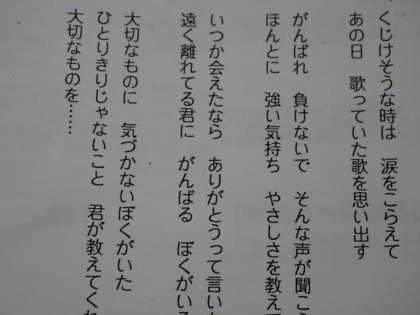 くじけそうな時は　涙をこらえて
あの日　歌っていた歌を思い出す
がんばれ　負けないで　そんな声が聞こ
ほんとに　強い気持ち　やさしさを教え
いつか会えたなら　ありがとうって言い
遠く離れてる君に　がんばる　ぼくがい
大切なものに　気づかないぼくがいた
ひとりきりじゃないこと　君が教えてく
大切なものを……